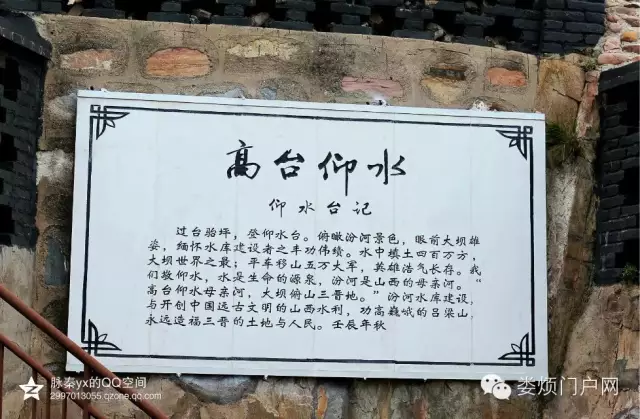 高台仰水
仰水台记
过台骀坪，登仰水台。俯瞰汾河景色，眼前大坝雄
姿，缅怀水库建设者之丰功伟绩。水中填土四百万方，
大坝世界之最；平车移山五万大军，英雄浩气长存。我
们敬仰水，水是生命的源泉，汾河是山西的母亲河。“
高台仰水母亲河，大坝俯山三晋地。”汾河水库建设，
与开创中国远古文明的山西水利，功高巍峨的吕梁山，
永远造福三晋的土地与人民。壬辰年秋
脉秦yx的QQ空间
2997013055.qzone.qq.com
娄烦门户网